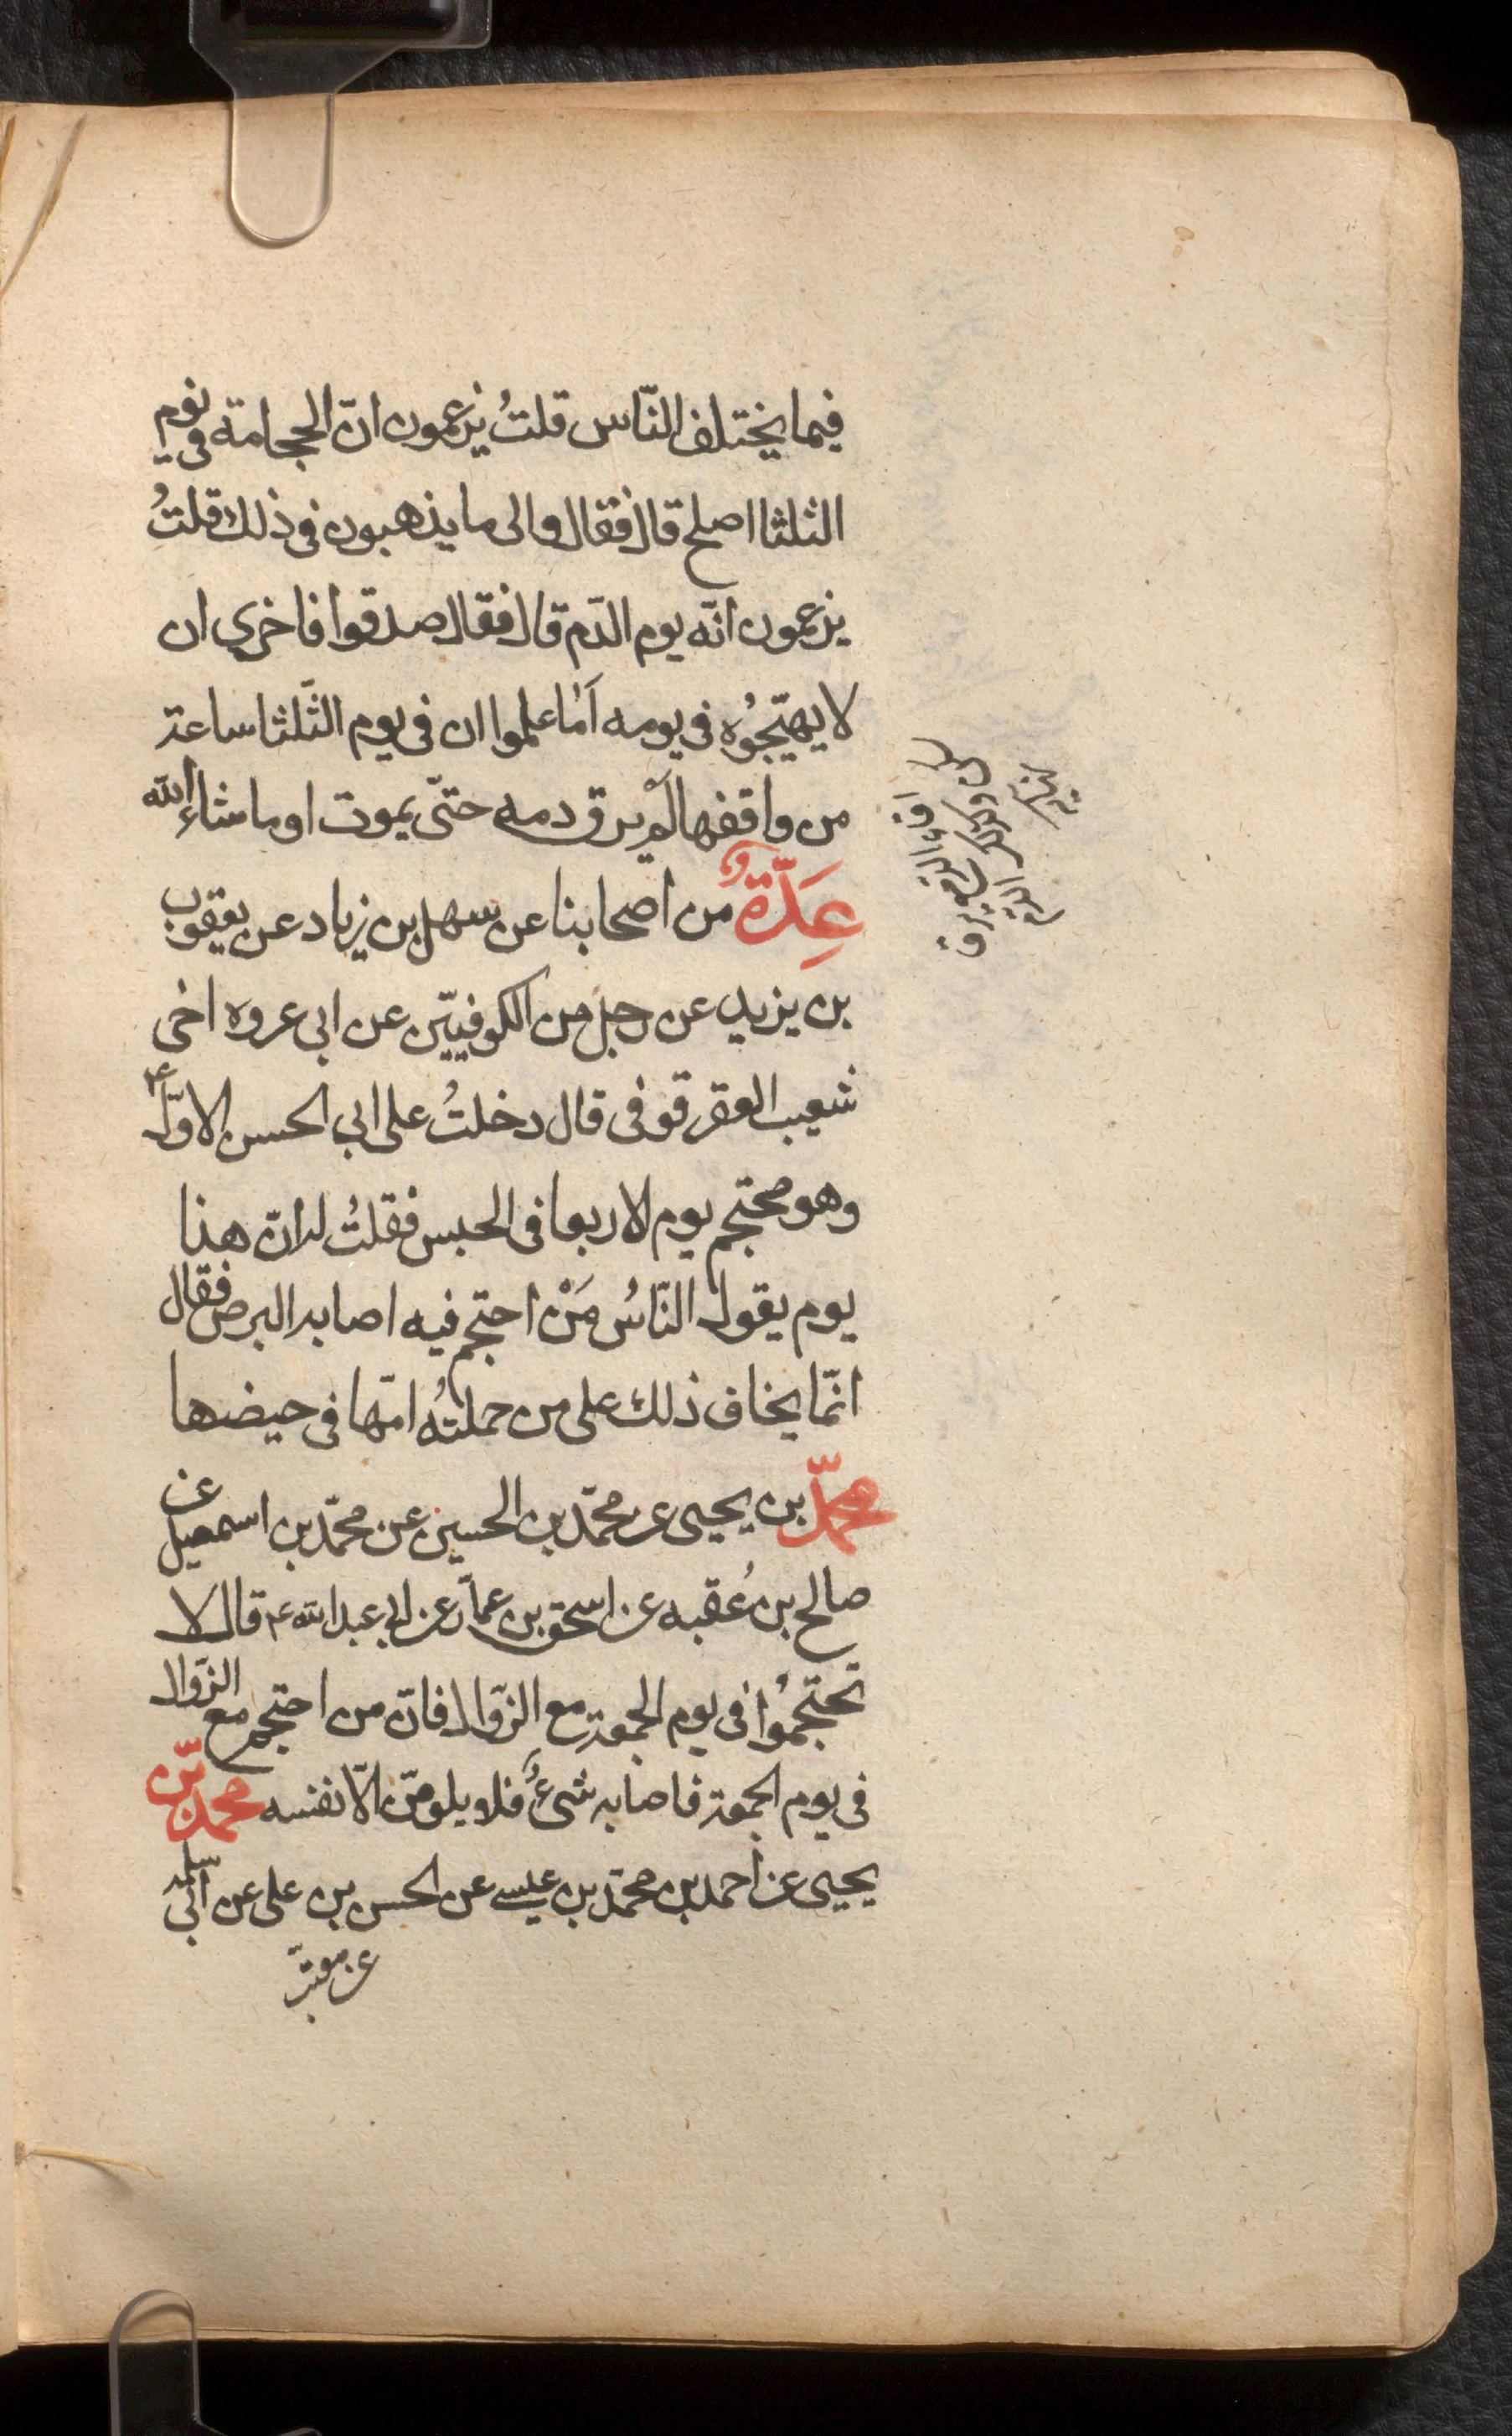 فيما يختلف النّاس قلتُ يزعمون انّ الحجامة في يوم
الثلثا اصلح قال فقال والى ما يذهبون في ذلك قلتُ
يزعمون انّه يوم الدّم قال فقال صدقوا فاخرى ان
لا يهيّجوُه في يومه اَما علموا ان في يوم الثّلثا ساعة
من وافقها لم يرق دمه حتّى يموت او ما شاء الله
عِدّةٌ من اصحابنا عن سهل بن زياد عن يعقوب
بن يزيد عن رجل من الكوفيّين عن ابى عروه اخى
شعيب العقرقوفى قال دخلتُ على ابى الحسن الاوّل ع
وهو محتجم يوم الاربعا فى الحبس فقلتُ له انّ هذا
يوم يقول النّاسُ مَنْ احتجم فيه اصابه البرص فقال
انّما يخاف ذلك على من حملتهُ امّها فى حيضها
محمّد بن يحيى عن محمّد بن الحسين عن محمّد بن اسمعيل عن
صالح بن عُقبه عن اسحق بن عمّار عن ابى عبد الله ع قال لا
تحتجموُا فى يوم الجمعة مع الزّوال فانّ من احتجم مع الزّوال
فى يوم الجمعة فاصابه شىءٌ فلا يلومنّ الّا نفسه محمد بن
يحيى عن احمد بن محمّد بن عيسى عن الحسن بن على عن ابى سلمه
عن معتّب